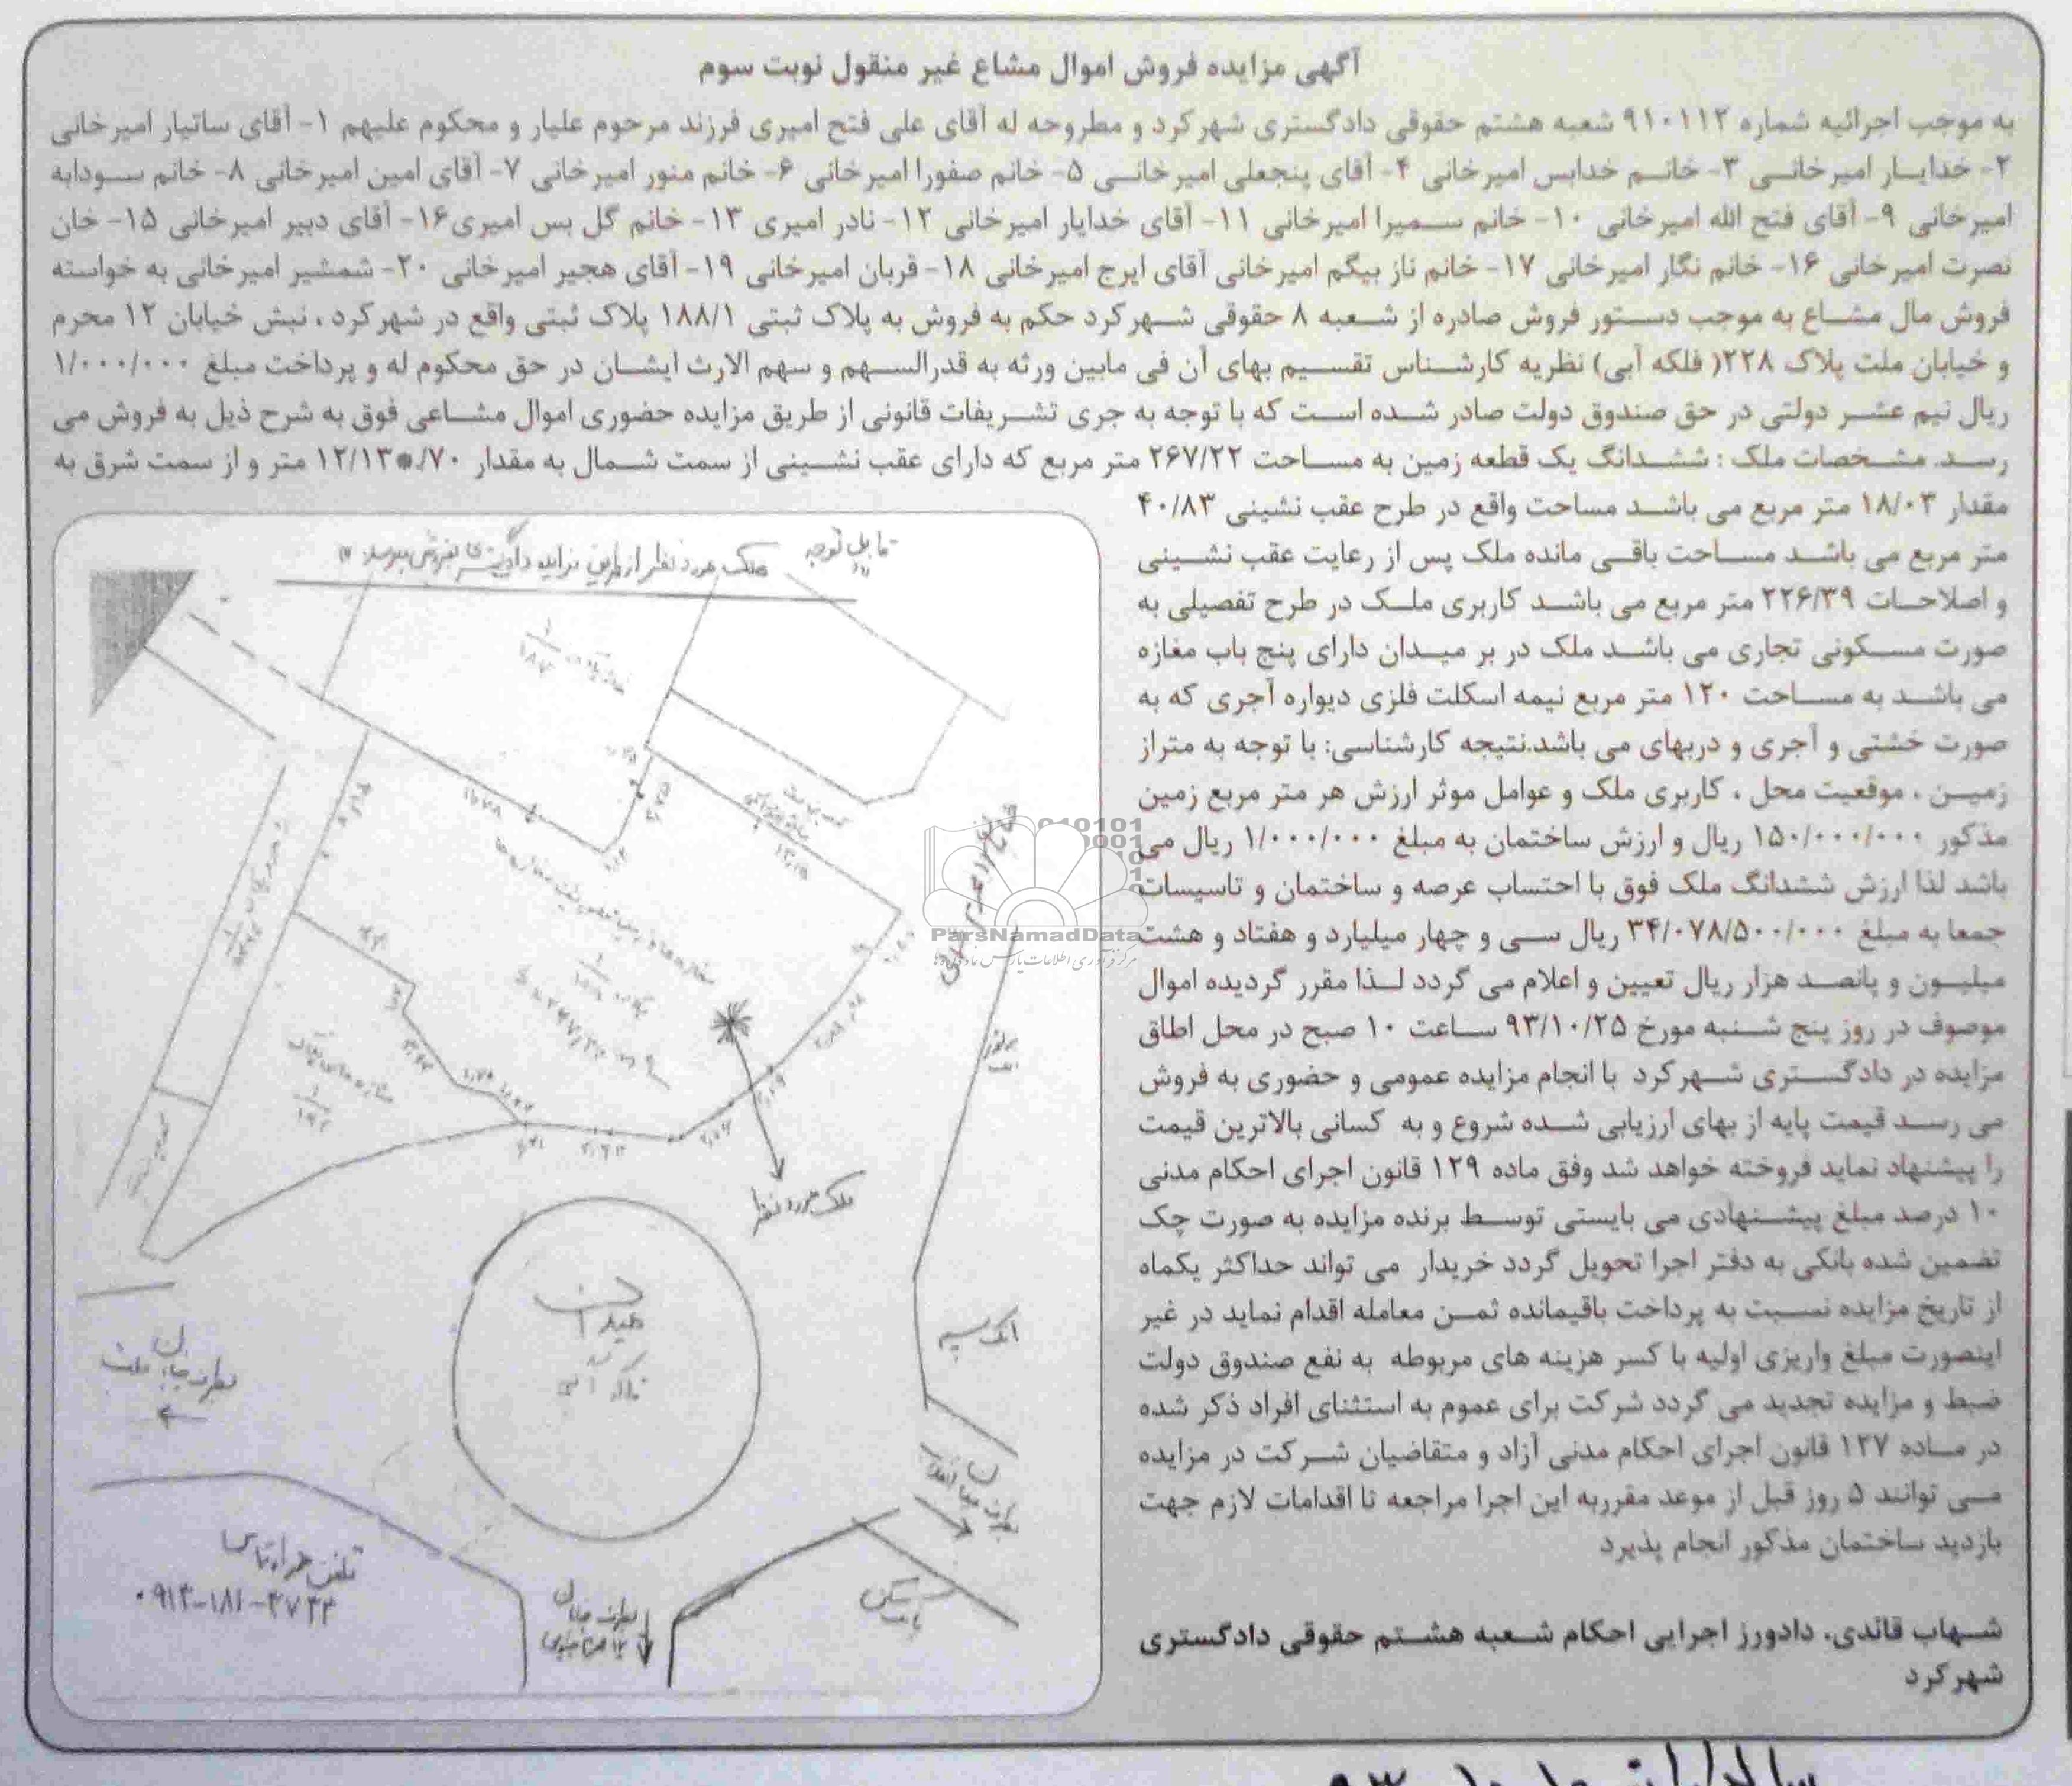 آگهی مزایده فروش اموال مشاع غیر منقول نوبت سوم
به موجب اجرائیه شماره ۹۱۰۱۱۲ شعبه هشتم حقوقی دادگستری شهرکرد و مطروحه له آقای علی فتح امیری فرزند مرحوم علیار و محکوم علیهم ۱- آقای ساتیار امیرخانی
۲- خدایار امیرخانی ۳- خانم خدابس امیرخانی ۴- آقای پنجعلی امیرخانی ۵- خانم صفورا امیرخانی ۶- خانم منور امیرخانی ۷- آقای امین امیرخانی ۸- خانم سودابه
امیرخانی ۹- آقای فتح الله امیرخانی ۱۰- خانم سمیرا امیرخانی ۱۱- آقای خدایار امیرخانی ۱۲- نادر امیری ۱۳- خانم گل بس امیری۱۶- آقای دبیر امیرخانی ۱۵- خان
نصرت امیرخانی ۱۶- خانم نگار امیرخانی ۱۷- خانم ناز بیگم امیرخانی آقای ایرج امیرخانی ۱۸- قربان امیرخانی ۱۹- آقای هجیر امیرخانی ۲۰- شمشیر امیرخانی به خواسته
فروش مال مشاع به موجب دستور فروش صادره از شعبه ۸ حقوقی شهرکرد حکم به فروش به پلاک ثبتی ۱۸۸/۱ پلاک ثبتی واقع در شهرکرد ، نبش خیابان ۱۲ محرم
و خیابان ملت پلاک ۲۲۸( فلکه آبی) نظریه کارشناس تقسیم بهای آن فی مابین ورثه به قدرالسهم و سهم الارث ایشان در حق محکوم له و پرداخت مبلغ ۱/۰۰۰/۰۰۰
ریال نیم عشر دولتی در حق صندوق دولت صادر شده است که با توجه به جری تشریفات قانونی از طریق مزایده حضوری اموال مشاعی فوق به شرح ذیل به فروش می
رسد. مشخصات ملک : ششدانگ یک قطعه زمین به مساحت ۲۶۷/۲۲ متر مربع که دارای عقب نشینی از سمت شمال به مقدار ۱۲/۱۳*۰/۷۰ متر و از سمت شرق به
مقدار ۱۸/۰۳ متر مربع می باشد مساحت واقع در طرح عقب نشینی ۴۰/۸۳
متر مربع می باشد مساحت باقی مانده ملک پس از رعایت عقب نشینی
و اصلاحات ۲۲۶/۳۹ متر مربع می باشد کاربری ملک در طرح تفصیلی به
صورت مسکونی تجاری می باشد ملک در بر میدان دارای پنج باب مغازه
می باشد به مساحت ۱۲۰ متر مربع نیمه اسکلت فلزی دیواره آجری که به
صورت خشتی و آجری و دربهای می باشد.نتیجه کارشناسی: با توجه به متراز
زمین ، موقعیت محل ، کاربری ملک و عوامل موثر ارزش هر متر مربع زمین
مذکور ۱۵۰/۰۰۰/۰۰۰ ریال و ارزش ساختمان به مبلغ ۱/۰۰۰/۰۰۰ ریال می
باشد لذا ارزش ششدانگ ملک فوق با احتساب عرصه و ساختمان و تاسیسات
جمعا به مبلغ ۳۴/۰۷۸/۵۰۰/۰۰۰ ریال سی و چهار میلیارد و هفتاد و هشت
میلیون و پانصد هزار ریال تعیین و اعلام می گردد لذا مقرر گردیده اموال
موصوف در روز پنج شنبه مورخ ۹۳/۱۰/۲۵ ساعت ۱۰ صبح در محل اطاق
مزایده در دادگستری شهرکرد با انجام مزایده عمومی و حضوری به فروش
می رسد قیمت پایه از بهای ارزیابی شده شروع و به کسانی بالاترین قیمت
را پیشنهاد نماید فروخته خواهد شد وفق ماده ۱۲۹ قانون اجرای احکام مدنی
۱۰ درصد مبلغ پیشنهادی می بایستی توسط برنده مزایده به صورت چک
تضمین شده بانکی به دفتر اجرا تحویل گردد خریدار می تواند حداکثر یکماه
از تاریخ مزایده نسبت به پرداخت باقیمانده ثمن معامله اقدام نماید در غیر
اینصورت مبلغ واریزی اولیه با کسر هزینه های مربوطه به نفع صندوق دولت
ضبط و مزایده تجدید می گردد شرکت برای عموم به استثنای افراد ذکر شده
در ماده ۱۲۷ قانون اجرای احکام مدنی آزاد و متقاضیان شرکت در مزایده
می توانند ۵ روز قبل از موعد مقرربه این اجرا مراجعه تا اقدامات لازم جهت
بازدید ساختمان مذکور انجام پذیرد
شهاب قائدی. دادورز اجرایی احکام شعبه هشتم حقوقی دادگستری
شهرکرد
قابل توجه
ملک مورد نظر از طریق مزایده دادگستری بفروش میرسد
۱
۱۸۷
۱۳,۱۵
پلاک ۱
۱۸۸
ملک مورد نظر
میدان
فلکه آبی
بانک سپه
بطرف خیابان ملت
بطرف خیابان
۱۲ محرم جنوبی
بانک مسکن
تلفن همراه تماس
۰۹۱۳-۱۸۱-۳۷۳۳
ParsNamadData
مرکز فرآوری اطلاعات پارس نماد داده‌ها